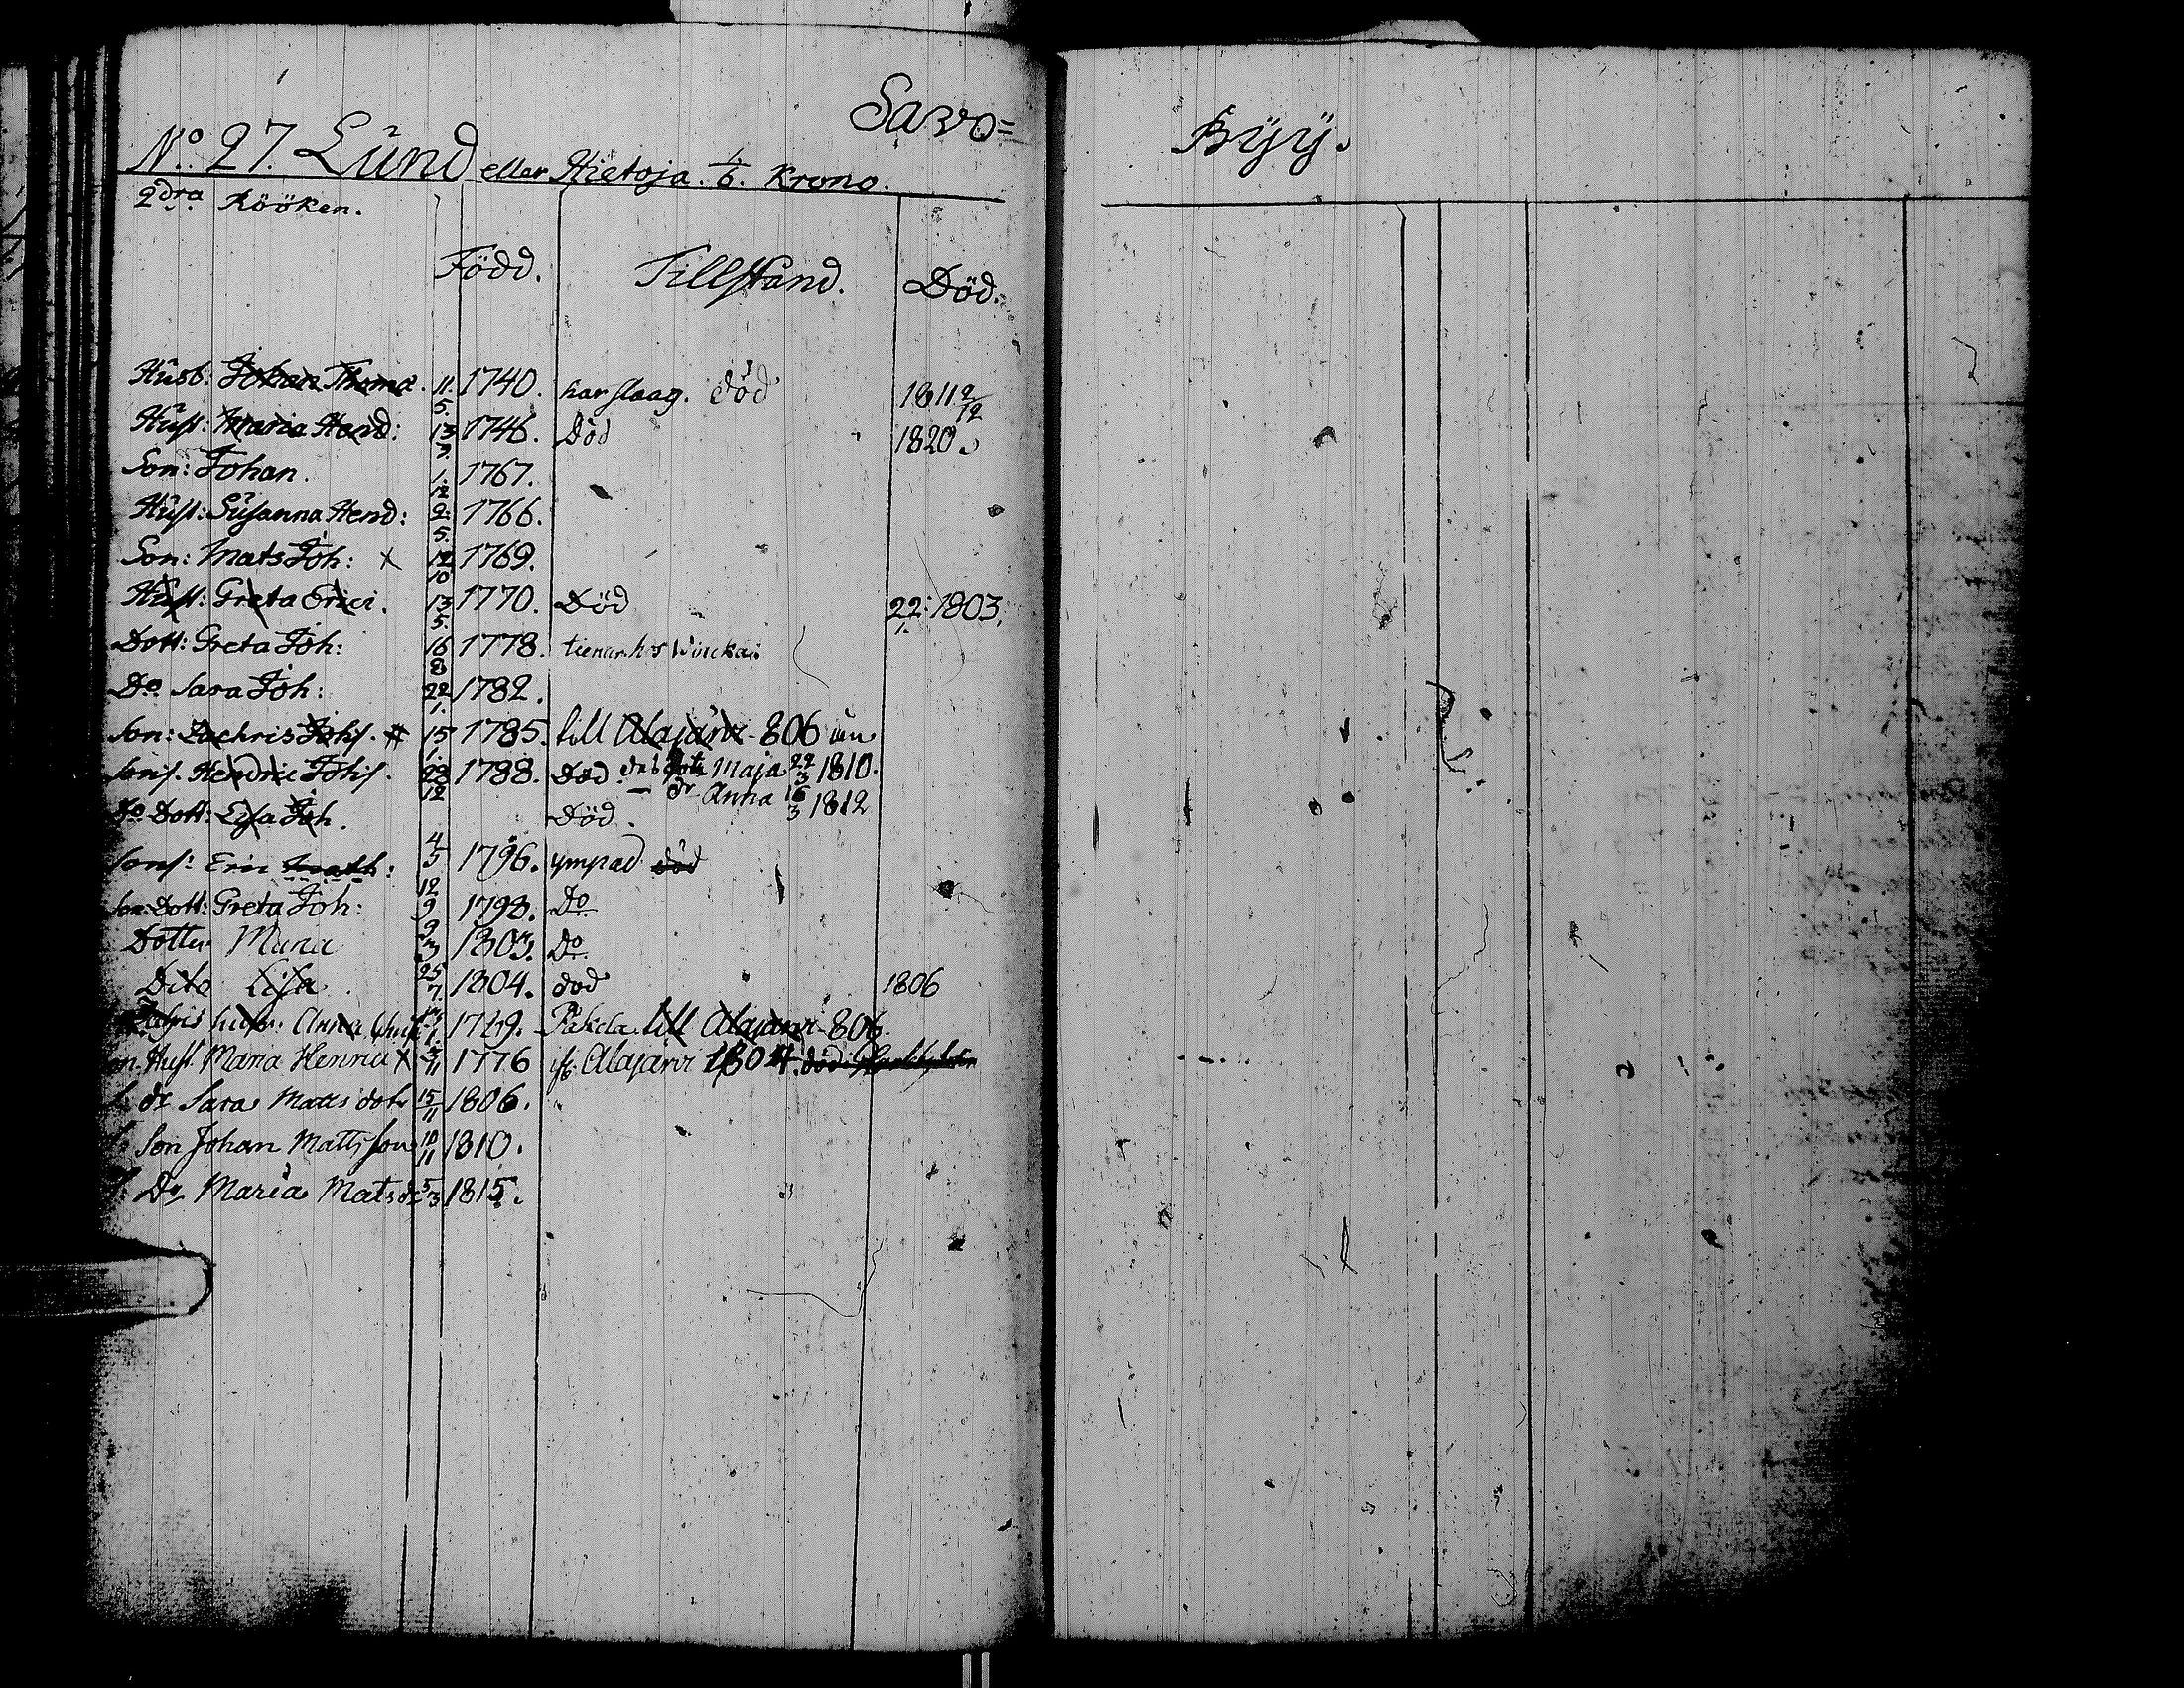 Savo= Byy.
No. 27. Lund eller Hietoja. 1/6. Krono.
2dra Rööken.
Född. Tillstånd. Död.
Husb: Johan Thoma. 11. 5. 1740. har slaag. död 1811 2/12
Hust: Maria Hend: 13 3. 1746. Död 1820.
Son: Johan. 1. 12 1767.
Hust: Susanna Hend: 2. 5. 1766.
Son: Mats Joh: x 12 10 1769.
Hust: Greta Erici. 13 5. 1770. Död 22. 1. 1803.
Dott: Greta Joh: 16 8 1778. tienar hos
Do Sara Joh: 22 1. 1782.
Son: Zachris Johs. # 15 1. 1785. till Alajärvi 806
Sons. Hendric Johs. 28 12 1788. död Maja 22/3 1810.
dr Anna 16/3 1812
Do Dott: Lisa Joh. Död.
Sons: Eric Math: 4/5 1796. ympad död
Son: Dott: Greta Joh: 12 9 1798. Do
Dotter Maria 9 3 1803. Do
Dito Lisa 25 7. 1804. död 1806
hustr: Anna 1. till Alajärvi 806.
Hust. Maria Henric x 3/11 1776 Alajärvi 1804. död
dr Sara Matts dotr 15/11 1806.
Son Johan Matts son 10/11 1810.
Dr Maria Mats dr 5/3 1815.